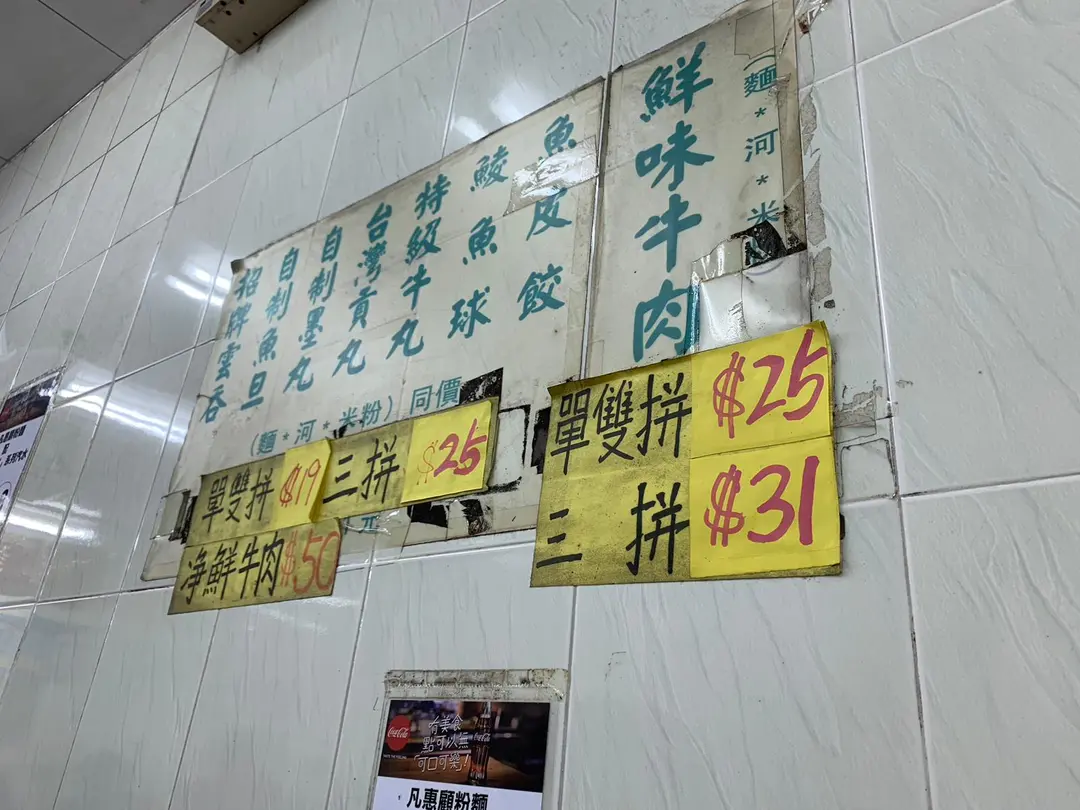 鮮味牛肉
(麵*河*米
單雙拼 $25
三拼 $31
魚皮餃
鯪魚球
特級牛丸
台灣貢丸
自制墨丸
自制魚旦
招牌雲吞
(麵*河*米粉)同價
單雙拼 $19 三拼 $25
净鮮牛肉 $50
Coca-Cola
有美食
點可以無
「可口可樂」!
凡惠顧粉麵